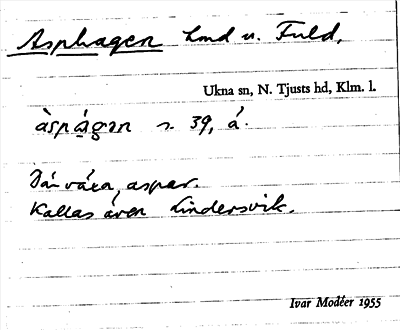 Asphagen hmd u. Fuld,
Ukna sn, N. Tjusts hd, Klm. l.
àspágən s. 39, á.
Där växa aspar.
Kallas även Lindersvik.
Ivar Modéer 1955